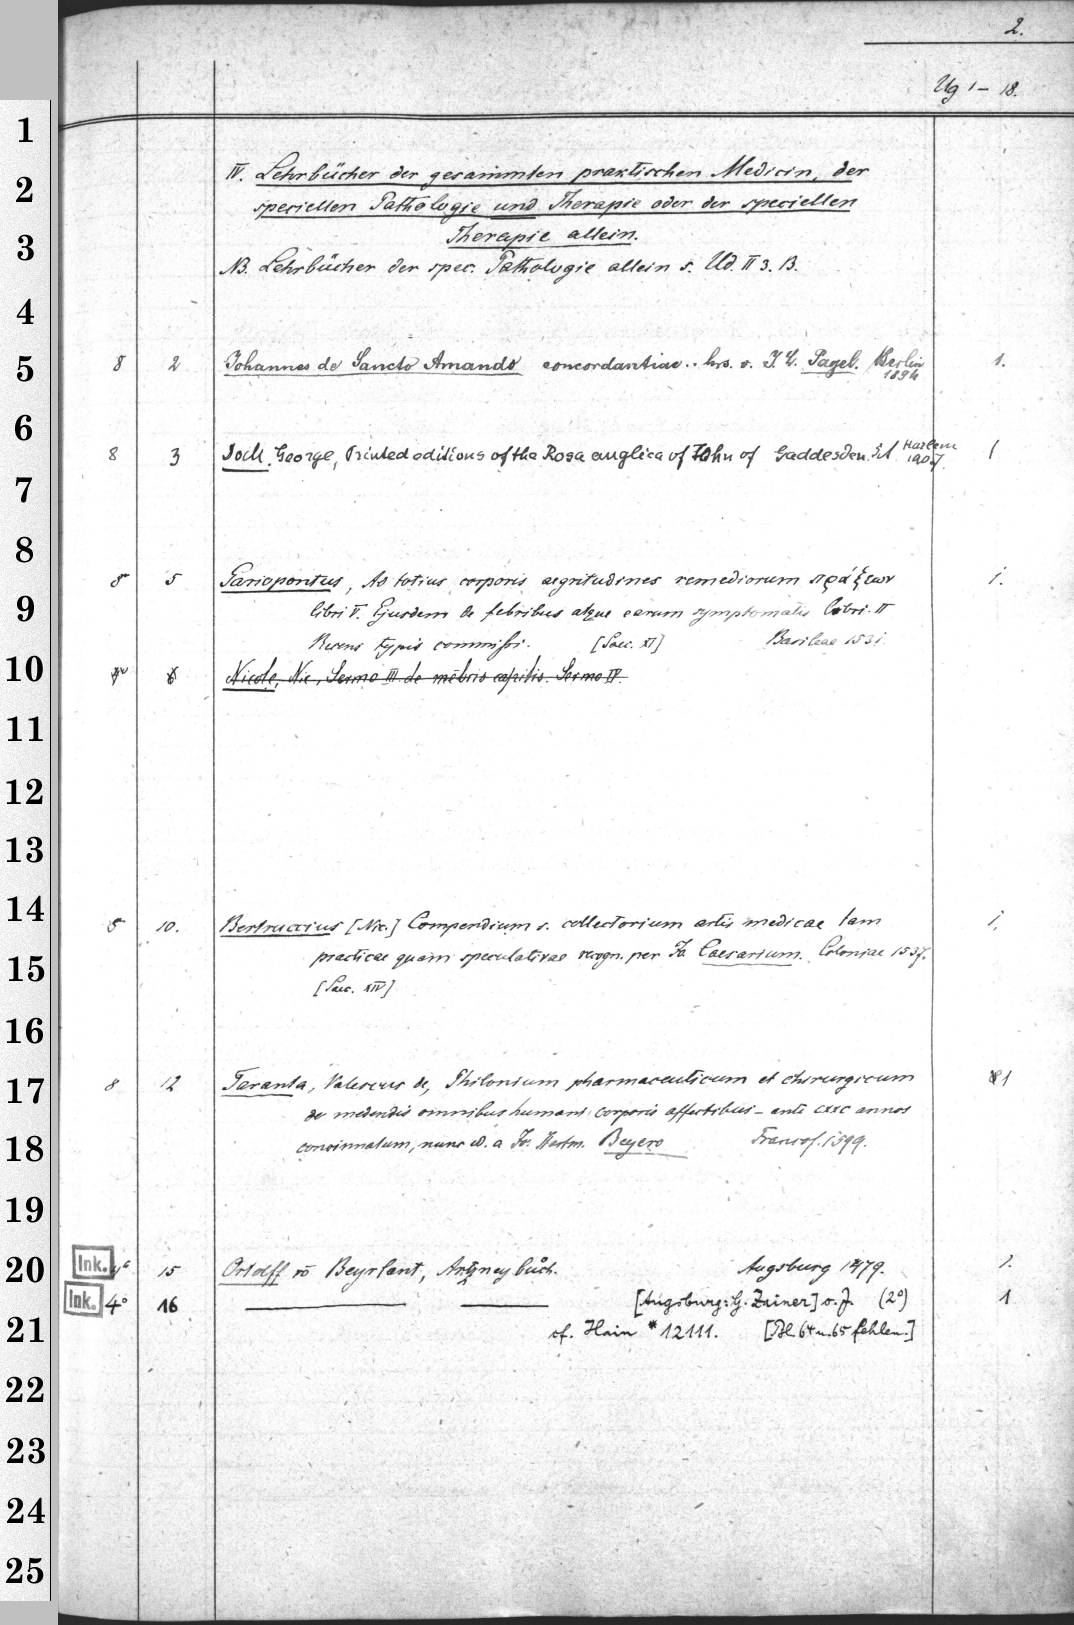 2.
Ug 1 – 18.
IV. Lehrbücher der gesammten praktischen Medicin, der
speciellen Pathologie und Therapie oder der speciellen
Therapie allein.
NB. Lehrbücher der spec. Pathologie allein s. Ud. II 3. B.
8 2 Johannes de Sancto Amando concordantiae .. hrs. v. J. L. Pagel. Berlin 1894 1.
8 3 Dock, George, Printed editions of the Rosa anglica of John of Gaddesden. Harlem 1907. 1
8 5 Gariopontus, Ad totius corporis aegritudines remediorum πράξεων 1.
libri V. Ejusdem de febribus atque earum symptomatis libri. II
Recens typis commissi. [Saec. XI] Basileae 1531.
6 Nicole, Nic., Sermo III. de mēbris capitis. Sermo IV.
8 10. Bertruccius [Nic.] Compendium s. collectorium artis medicae tam 1.
practicae quam speculativae recogn. per Jo. Caesarium. Coloniae 1537.
[Saec. XIV]
8 12 Taranta, Valescus de, Philonium pharmaceuticum et chirurgicum 1
de medendis omnibus humani corporis affectibus – ante CXXC annos
concinnatum, nunc ed. a Jo. Hartm. Beyero Francof. 1599.
Ink. 4° 15 Ortolff vō Beyrlant, Artzneybůch. Augsburg 1479. 1.
Ink. 4° 16 ——— ——— [Augsburg: G. Zainer] o. J. (2°) 1
cf. Hain *12111. [Bl. 64 u. 65 fehlen.]
1
2
3
4
5
6
7
8
9
10
11
12
13
14
15
16
17
18
19
20
21
22
23
24
25